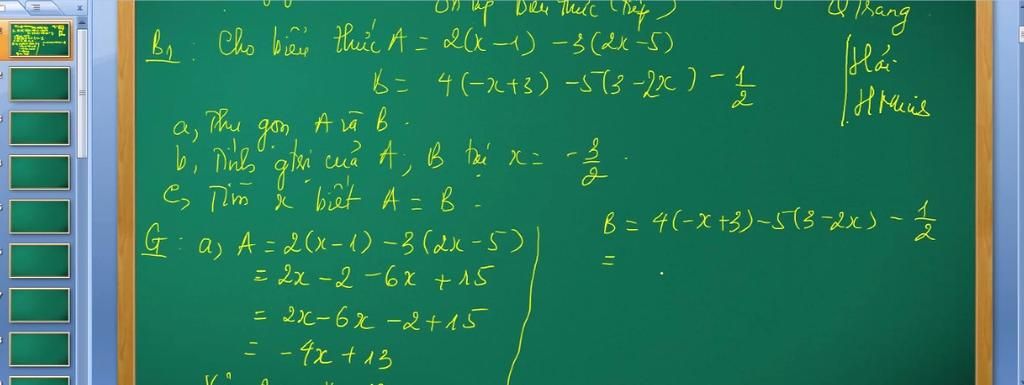 Q Trang
B1: Cho biểu thức A = 2(x-1) -3(2x-5)
B = 4(-x+3) -5(3-2x) - 1/2
Hải
a, Thu gọn A và B.
b, Tính gtrị của A, B tại x = -3/2.
c, Tìm x biết A = B.
G: a, A = 2(x-1) -3(2x-5)
= 2x-2 -6x +15
= 2x-6x -2+15
= -4x+13
B = 4(-x+3) -5(3-2x) - 1/2
=